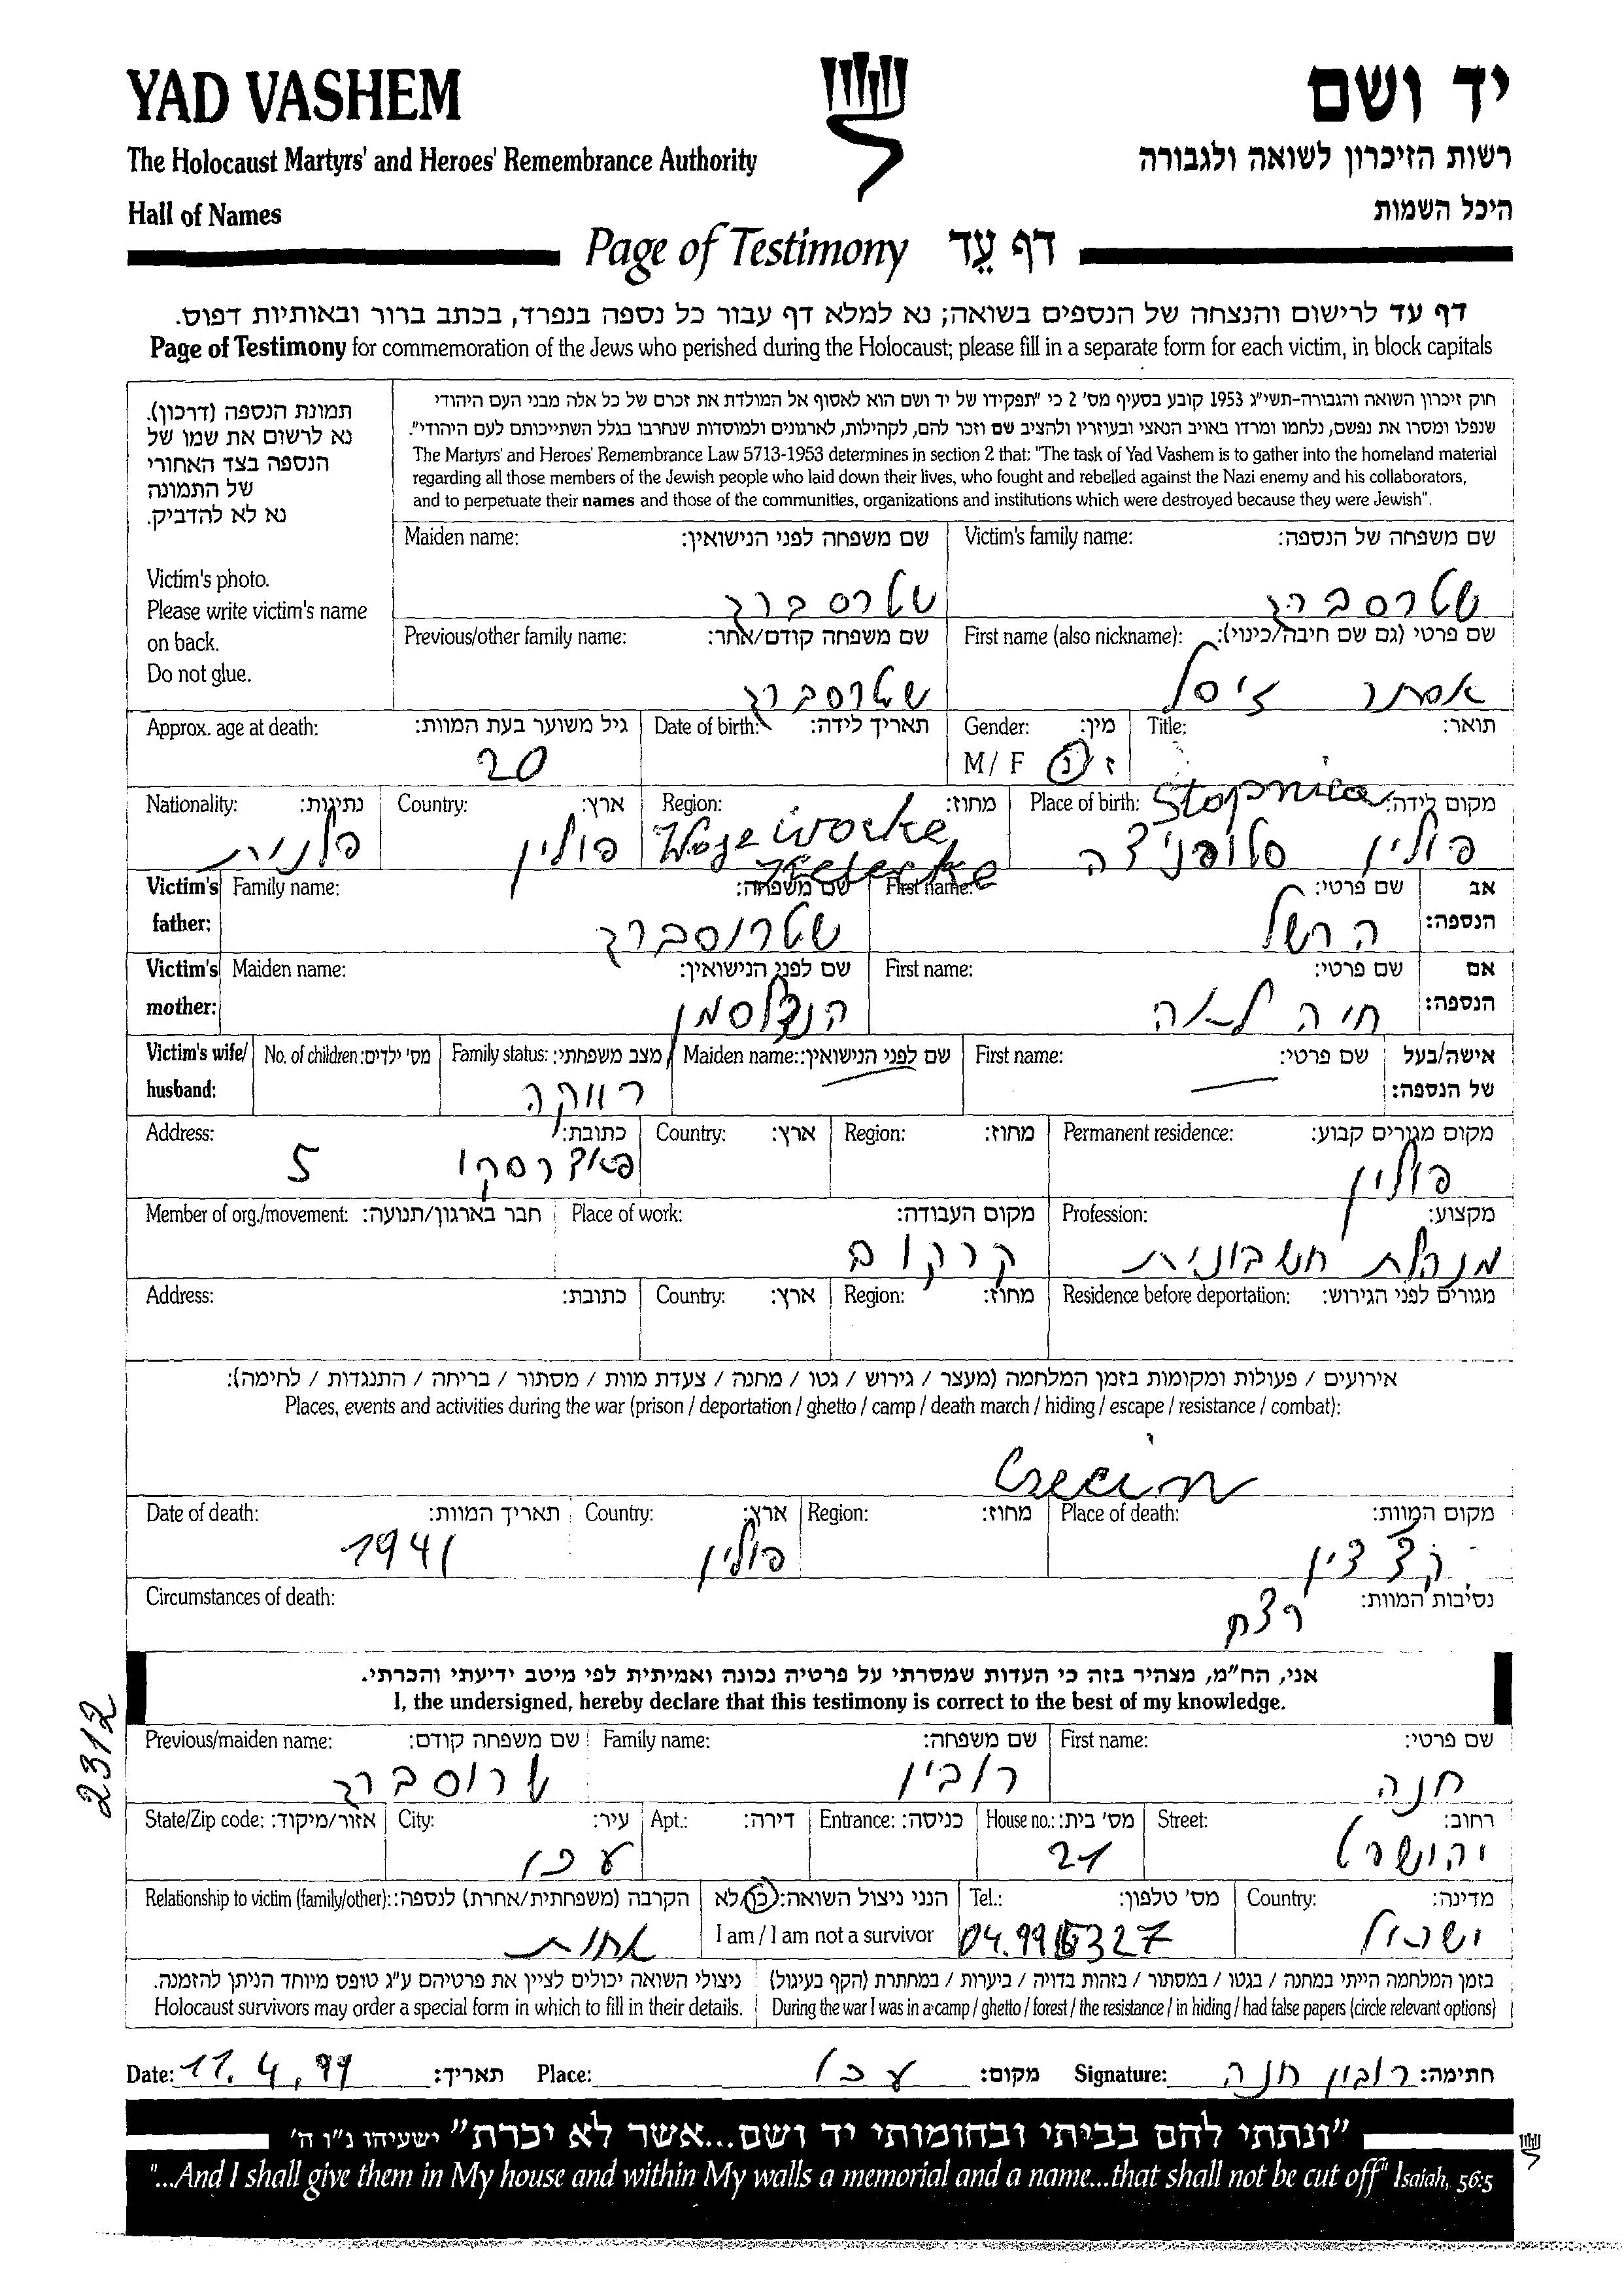 YAD VASHEM
יד ושם
The Holocaust Martyrs' and Heroes' Remembrance Authority
רשות הזיכרון לשואה ולגבורה
Hall of Names
היכל השמות
Page of Testimony דף עֵד
דף עד לרישום והנצחה של הנספים בשואה; נא למלא דף עבור כל נספה בנפרד, בכתב ברור ובאותיות דפוס.
Page of Testimony for commemoration of the Jews who perished during the Holocaust; please fill in a separate form for each victim, in block capitals
תמונת הנספה (דרכון).
נא לרשום את שמו של
הנספה בצד האחורי
של התמונה
נא לא להדביק.
Victim's photo.
Please write victim's name
on back.
Do not glue.
חוק זיכרון השואה והגבורה-תשי"ג 1953 קובע בסעיף מס' 2 כי "תפקידו של יד ושם הוא לאסוף אל המולדת את זכרם של כל אלה מבני העם היהודי
שנפלו ומסרו את נפשם, נלחמו ומרדו באויב הנאצי ובעוזריו ולהציב שם וזכר להם, לקהילות, לארגונים ולמוסדות שנחרבו בגלל השתייכותם לעם היהודי".
The Martyrs' and Heroes' Remembrance Law 5713-1953 determines in section 2 that: "The task of Yad Vashem is to gather into the homeland material
regarding all those members of the Jewish people who laid down their lives, who fought and rebelled against the Nazi enemy and his collaborators,
and to perpetuate their names and those of the communities, organizations and institutions which were destroyed because they were Jewish".
Victim's family name: שם משפחה של הנספה:
שטרסברג
Maiden name: שם משפחה לפני הנישואין:
שטרסברג
First name (also nickname): שם פרטי (גם שם חיבה/כינוי):
אסתר זיסל
Previous/other family name: שם משפחה קודם/אחר:
שטרוסברג
Title: תואר:
Gender: מין:
M / F ז נ
Date of birth: תאריך לידה:
Approx. age at death: גיל משוער בעת המוות:
20
Place of birth: מקום לידה:
Stopnica
פולין סטופניצה
Region: מחוז:
Country: ארץ:
פולין
Nationality: נתינות:
פלנית
Victim's father: אב הנספה:
First name: שם פרטי:
הרשל
Family name: שם משפחה:
שטרוסברג
Victim's mother: אם הנספה:
First name: שם פרטי:
חיה לאה
Maiden name: שם לפני הנישואין:
הנדלסמן
Victim's wife/ husband: אישה/בעל של הנספה:
First name: שם פרטי:
Maiden name: שם לפני הנישואין:
Family status: מצב משפחתי:
רווקה
No. of children: מס' ילדים:
Permanent residence: מקום מגורים קבוע:
פולין
Region: מחוז:
Country: ארץ:
Address: כתובת:
5
Profession: מקצוע:
מנהלת חשבונית
Place of work: מקום העבודה:
קרקוב
Member of org./movement: חבר בארגון/תנועה:
Residence before deportation: מגורים לפני הגירוש:
Region: מחוז:
Country: ארץ:
Address: כתובת:
אירועים / פעולות ומקומות בזמן המלחמה (מעצר / גירוש / גטו / מחנה / צעדת מוות / מסתור / בריחה / התנגדות / לחימה):
Places, events and activities during the war (prison / deportation / ghetto / camp / death march / hiding / escape / resistance / combat):
Place of death: מקום המוות:
Region: מחוז:
Country: ארץ:
פולין
Date of death: תאריך המוות:
1941
Circumstances of death: נסיבות המוות:
רצח
אני, הח"מ, מצהיר בזה כי העדות שמסרתי על פרטיה נכונה ואמיתית לפי מיטב ידיעתי והכרתי.
I, the undersigned, hereby declare that this testimony is correct to the best of my knowledge.
2312
First name: שם פרטי:
חנה
Family name: שם משפחה:
רובין
Previous/maiden name: שם משפחה קודם:
שרוסברג
Street: רחוב:
House no.: מס' בית:
21
Entrance: כניסה:
Apt.: דירה:
City: עיר:
עכו
State/Zip code: אזור/מיקוד:
Country: מדינה:
ישראל
Tel.: מס' טלפון:
הנני ניצול השואה: כן/לא
I am / I am not a survivor
Relationship to victim (family/other): הקרבה (משפחתית/אחרת) לנספה:
אחות
בזמן המלחמה הייתי במחנה / בגטו / במסתור / בזהות בדויה / ביערות / במחתרת (הקף בעיגול)
During the war I was in a camp / ghetto / forest / the resistance / in hiding / had false papers (circle relevant options)
ניצולי השואה יכולים לציין את פרטיהם ע"ג טופס מיוחד הניתן להזמנה.
Holocaust survivors may order a special form in which to fill in their details.
Date: 11.4,99 תאריך: Place: עכו מקום: Signature: רובין חנה חתימה:
"ונתתי להם בביתי ובחומותי יד ושם...אשר לא יכרת" ישעיהו נ"ו ה'
"...And I shall give them in My house and within My walls a memorial and a name...that shall not be cut off" Isaiah, 56:5